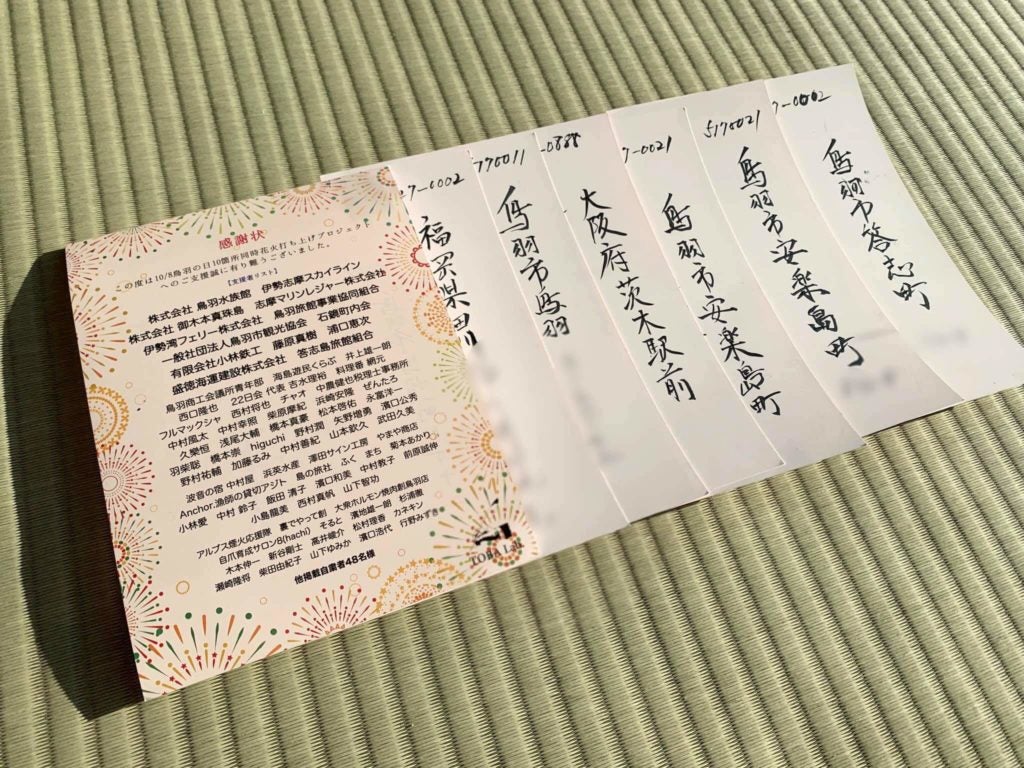 感謝状
この度は10/8鳥羽の日10箇所同時花火打ち上げプロジェクト
へのご支援誠に有り難うございました。
【支援者リスト】
株式会社 鳥羽水族館 伊勢志摩スカイライン
株式会社 御木本真珠島 志摩マリンレジャー株式会社
伊勢湾フェリー株式会社 鳥羽旅館事業協同組合
一般社団法人鳥羽市観光協会 石鏡町内会
有限会社小林鉄工 藤原真樹 浦口恵次
盛徳海運建設株式会社 答志島旅館組合
鳥羽商工会議所青年部 海島遊民くらぶ 井上雄一朗
西口隆也 22日会 代表 吉水理裕 料理番 網元
フルマックシャ 西村将也 チャオ 中農健也税理士事務所
中村風太 中村幸照 柴原摩紀 浜崎安隆 ぜんたろ
久樂恒 浅尾大輔 橋本真豪 松本啓佑 永富洋
羽柴聡 橋本崇 higuchi 野村潤 矢野増勇 濱口公秀
野村祐輔 加藤るみ 中村善紀 山本欽久 武田久美
波音の宿 中村屋 浜英水産 澤田サイン工房 やまや商店
Anchor.漁師の貸切アジト 島の旅社 ふく まち 菊本あかり
小林愛 中村 鈴子 飯田 清子 濱口和美 中村教子 前原誠伸
小島龍美 西村真帆 山下智功
アルプス煙火応援隊 裏でやって創 大衆ホルモン焼肉創鳥羽店
自爪育成サロンB(hachi) そると 濱地雄一朗 杉浦徹
木本伸一 新谷剛士 高井峻介 松村理香 カネキン
瀬崎隆将 柴田由紀子 山下ゆみか 濱口浩代 行野みずき
他掲載自粛者48名様
7-0002
福岡県田川
770011
鳥羽市鳥羽
-0888
大阪府茨木駅前
7-0021
鳥羽市安楽島町
5170021
鳥羽市安楽島町
7-0002
鳥羽市答志町